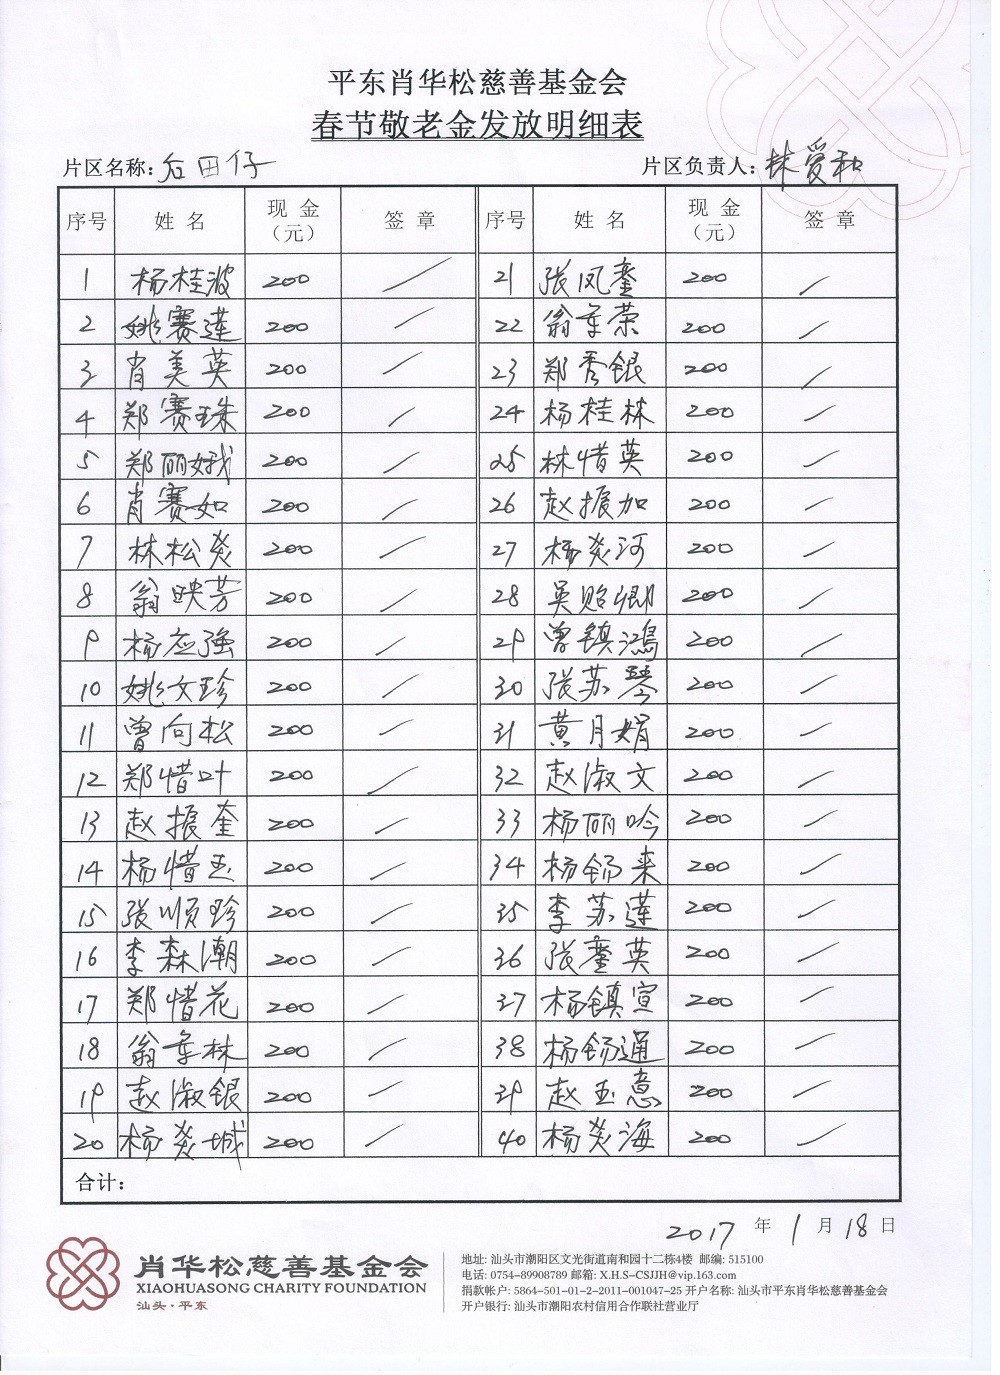 平东肖华松慈善基金会
春节敬老金发放明细表
片区名称：后田仔 片区负责人：林爱和
序号 姓名 现金（元） 签章 序号 姓名 现金（元） 签章
1 杨桂波 200 21 张凤銮 200
2 姚赛莲 200 22 翁年荣 200
3 肖美英 200 23 郑秀银 200
4 郑赛珠 200 24 杨桂林 200
5 郑丽娥 200 25 林惜英 200
6 肖赛如 200 26 赵振加 200
7 林松炎 200 27 杨炎河 200
8 翁映芳 200 28 吴贻卿 200
9 杨应强 200 29 曾镇鴻 200
10 姚文珍 200 30 张苏琴 200
11 曾向松 200 31 黄月娟 200
12 郑惜叶 200 32 赵淑文 200
13 赵振奎 200 33 杨丽吟 200
14 杨惜玉 200 34 杨锡来 200
15 张顺珍 200 35 李苏莲 200
16 李森潮 200 36 张銮英 200
17 郑惜花 200 37 杨镇宣 200
18 翁年林 200 38 杨锡通 200
19 赵淑银 200 39 赵玉意 200
20 杨炎城 200 40 杨炎海 200
合计：
2017 年 1 月 18 日
肖华松慈善基金会
XIAOHUASONG CHARITY FOUNDATION
汕头·平东
地址: 汕头市潮阳区文光街道南和园十二栋4楼 邮编: 515100
电话: 0754-89908789 邮箱: X.H.S-CSJJH@vip.163.com
捐款帐户: 5864-501-01-2-2011-001047-25 开户名称: 汕头市平东肖华松慈善基金会
开户银行: 汕头市潮阳农村信用合作联社营业厅